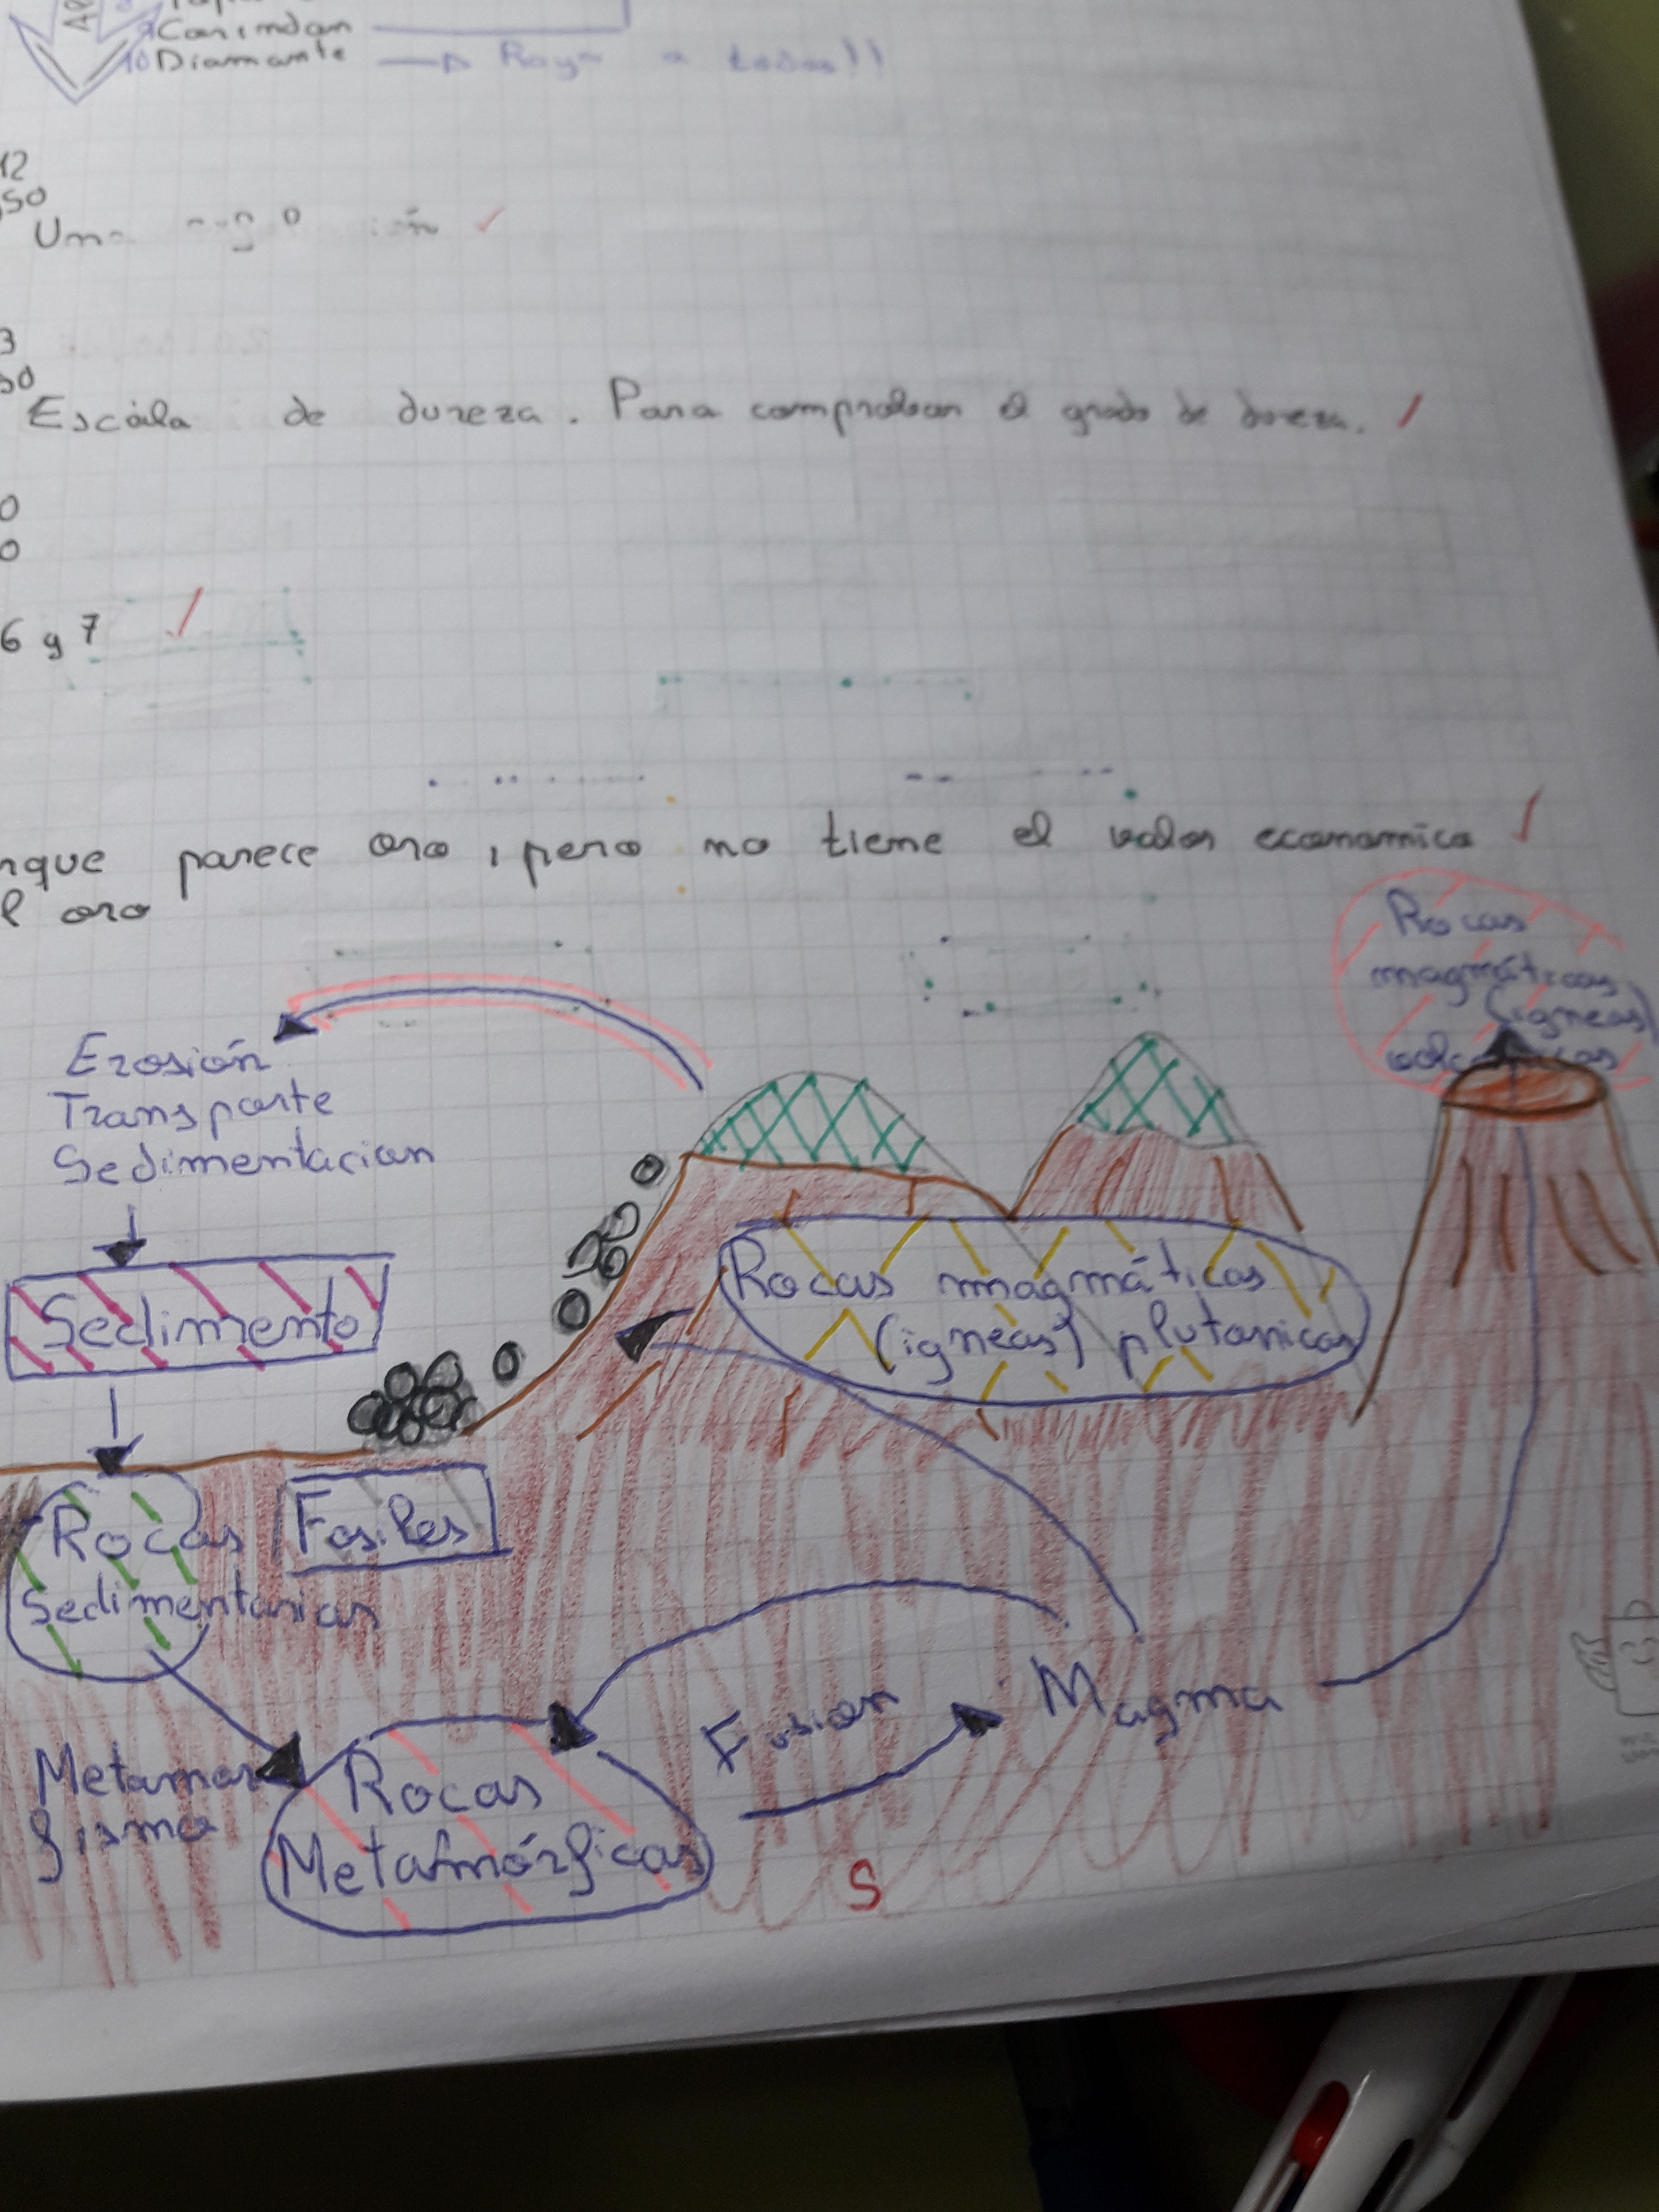 Corindon
10 Diamante → Raya a todos!!
12
50
Una
3
50
Escála de dureza. Para comprobar el grado de dureza.
0
0
6 y 7
nque parece oro, pero no tiene el valor economico
l oro
Rocas
magmáticas
(igneas)
volcanicas
Erosión
Transporte
Sedimentacion
Sedimento
Rocas magmáticas
(igneas) plutonicas
Fosiles
Rocas
Sedimentarias
Magma
Fusion
Metamor
fismo
Rocas
Metamórficas
S